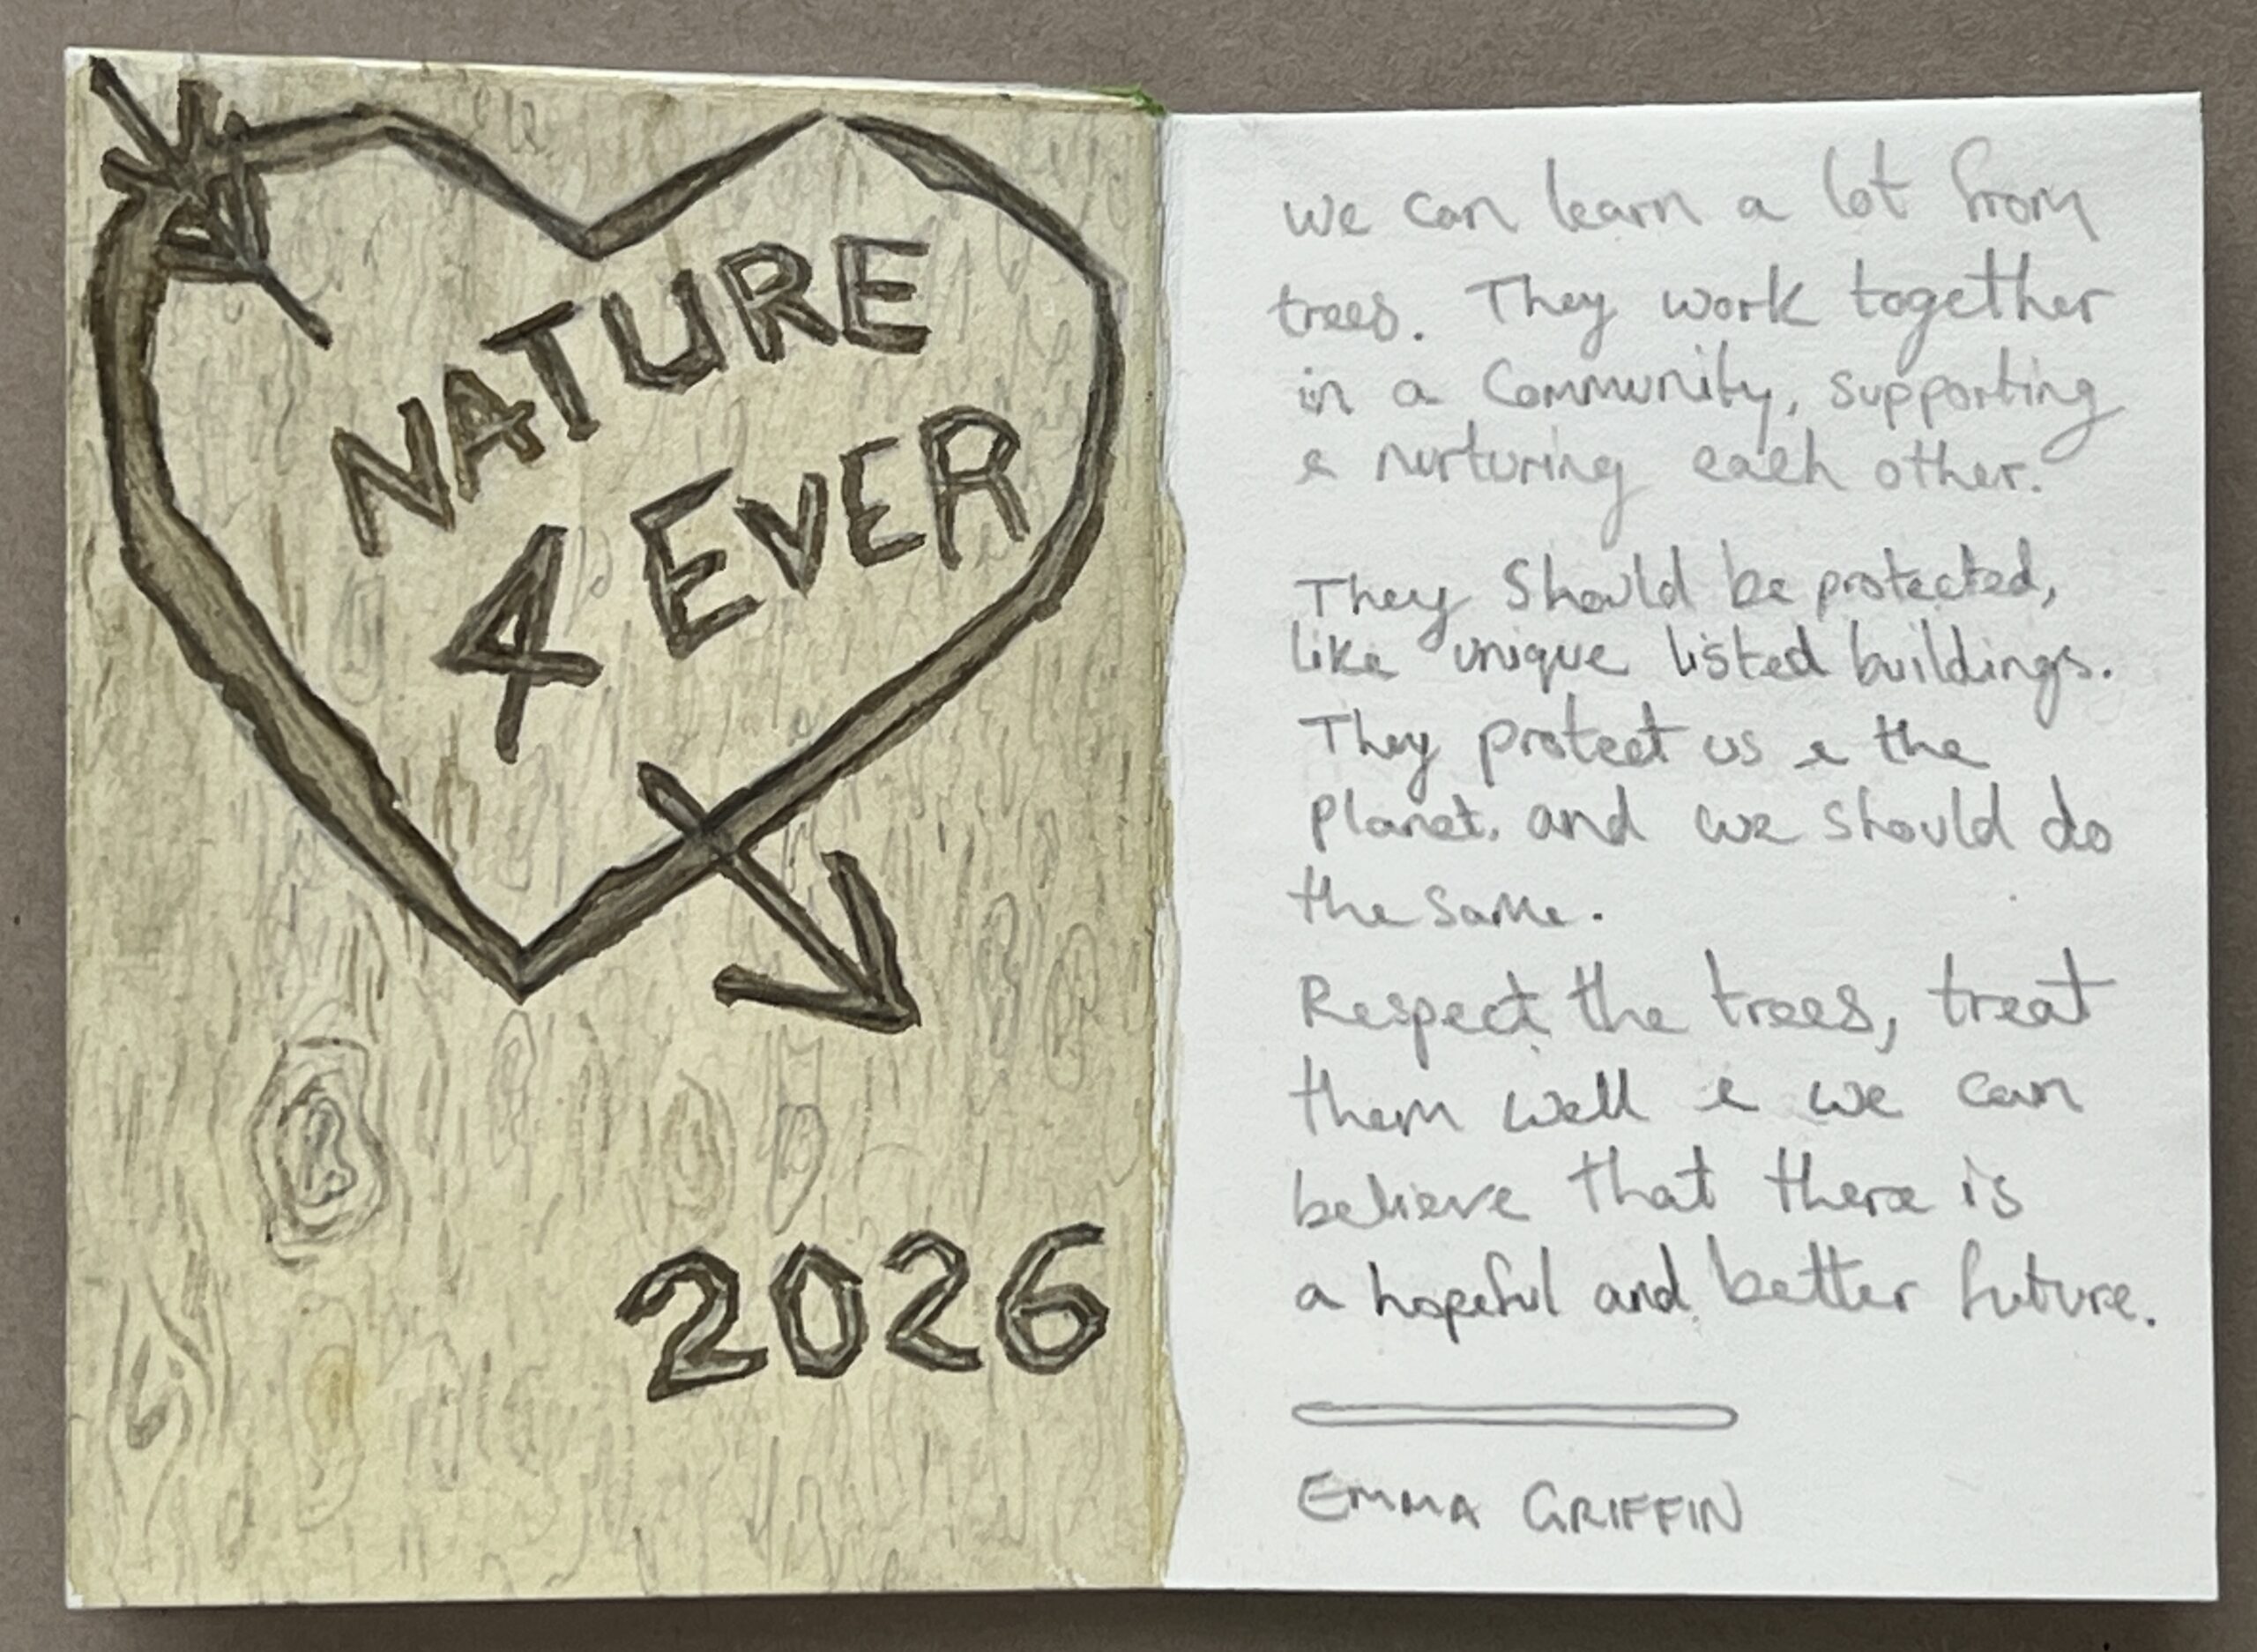 NATURE
4 EVER
2026
we can learn a lot from
trees. They work together
in a Community, supporting
& nurturing each other.
They Should be protected,
like unique listed buildings.
They protect us & the
planet, and we should do
the same.
Respect the trees, treat
them well & we can
believe that there is
a hopeful and better future.
EMMA GRIFFIN